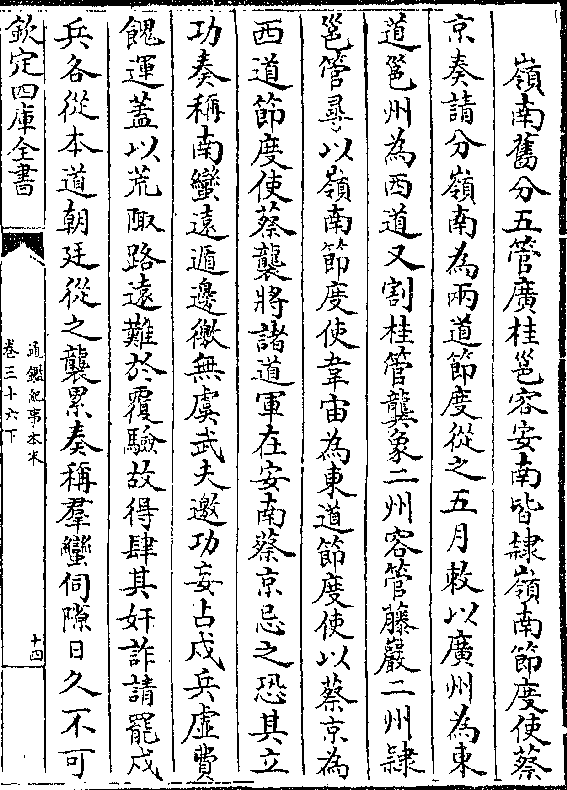 嶺南舊分五管廣桂邕容安南皆隸嶺南節度使蔡
京奏請分嶺南為兩道節度從之五月敕以廣州為東
道邕州為西道又割桂管龔象二州容管藤巖二州隸
邕管尋以嶺南節度使韋宙為東道節度使以蔡京為
西道節度使蔡襲將諸道軍在安南蔡京忌之恐其立
功奏稱南蠻遠遁邊徼無虞武夫邀功妄占戍兵虛費
餽運蓋以荒陬路遠難於覆驗故得肆其奸詐請罷戍
兵各從本道朝廷從之襲累奏稱羣蠻伺隙日久不可
欽定四庫全書
通鑑紀事本末
卷三十六下
十四